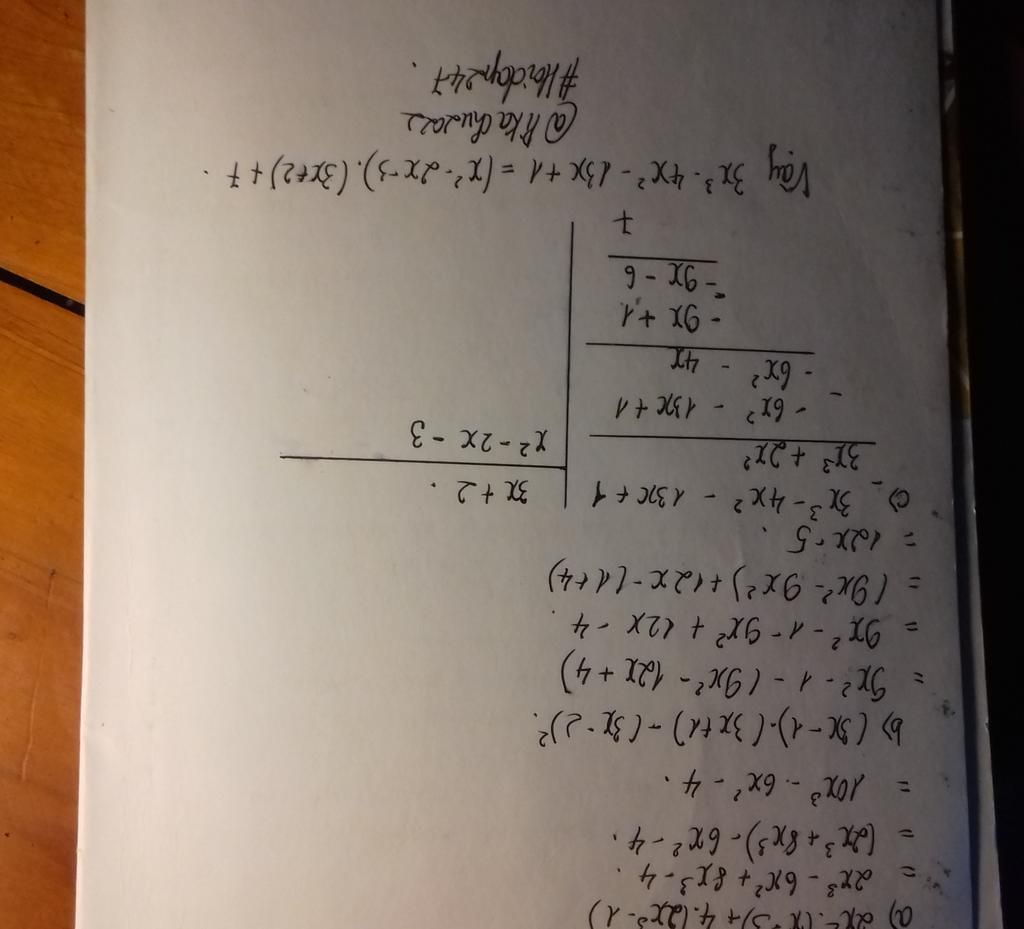 a) 2x². (x-3)+ 4.(2x³-1)
= 2x³ - 6x² + 8x³ - 4.
= (2x³ + 8x³) - 6x² - 4.
= 10x³ - 6x² - 4.
b) (3x - 1).(3x+1) - (3x - 2)².
= 9x² - 1 - (9x² - 12x + 4)
= 9x² - 1 - 9x² + 12x - 4.
= (9x² - 9x²) + 12x - (1+4)
= 12x - 5.
c) 3x³ - 4x² - 13x + 1 | 3x + 2.
- 3x³ + 2x² | x² - 2x - 3
- 6x² - 13x + 1
- - 6x² - 4x
- 9x + 1
- - 9x - 6
7
Vậy 3x³ - 4x² - 13x + 1 = (x² - 2x - 3). (3x+2) + 7.
@Pikachu2022
#Hoidap247.